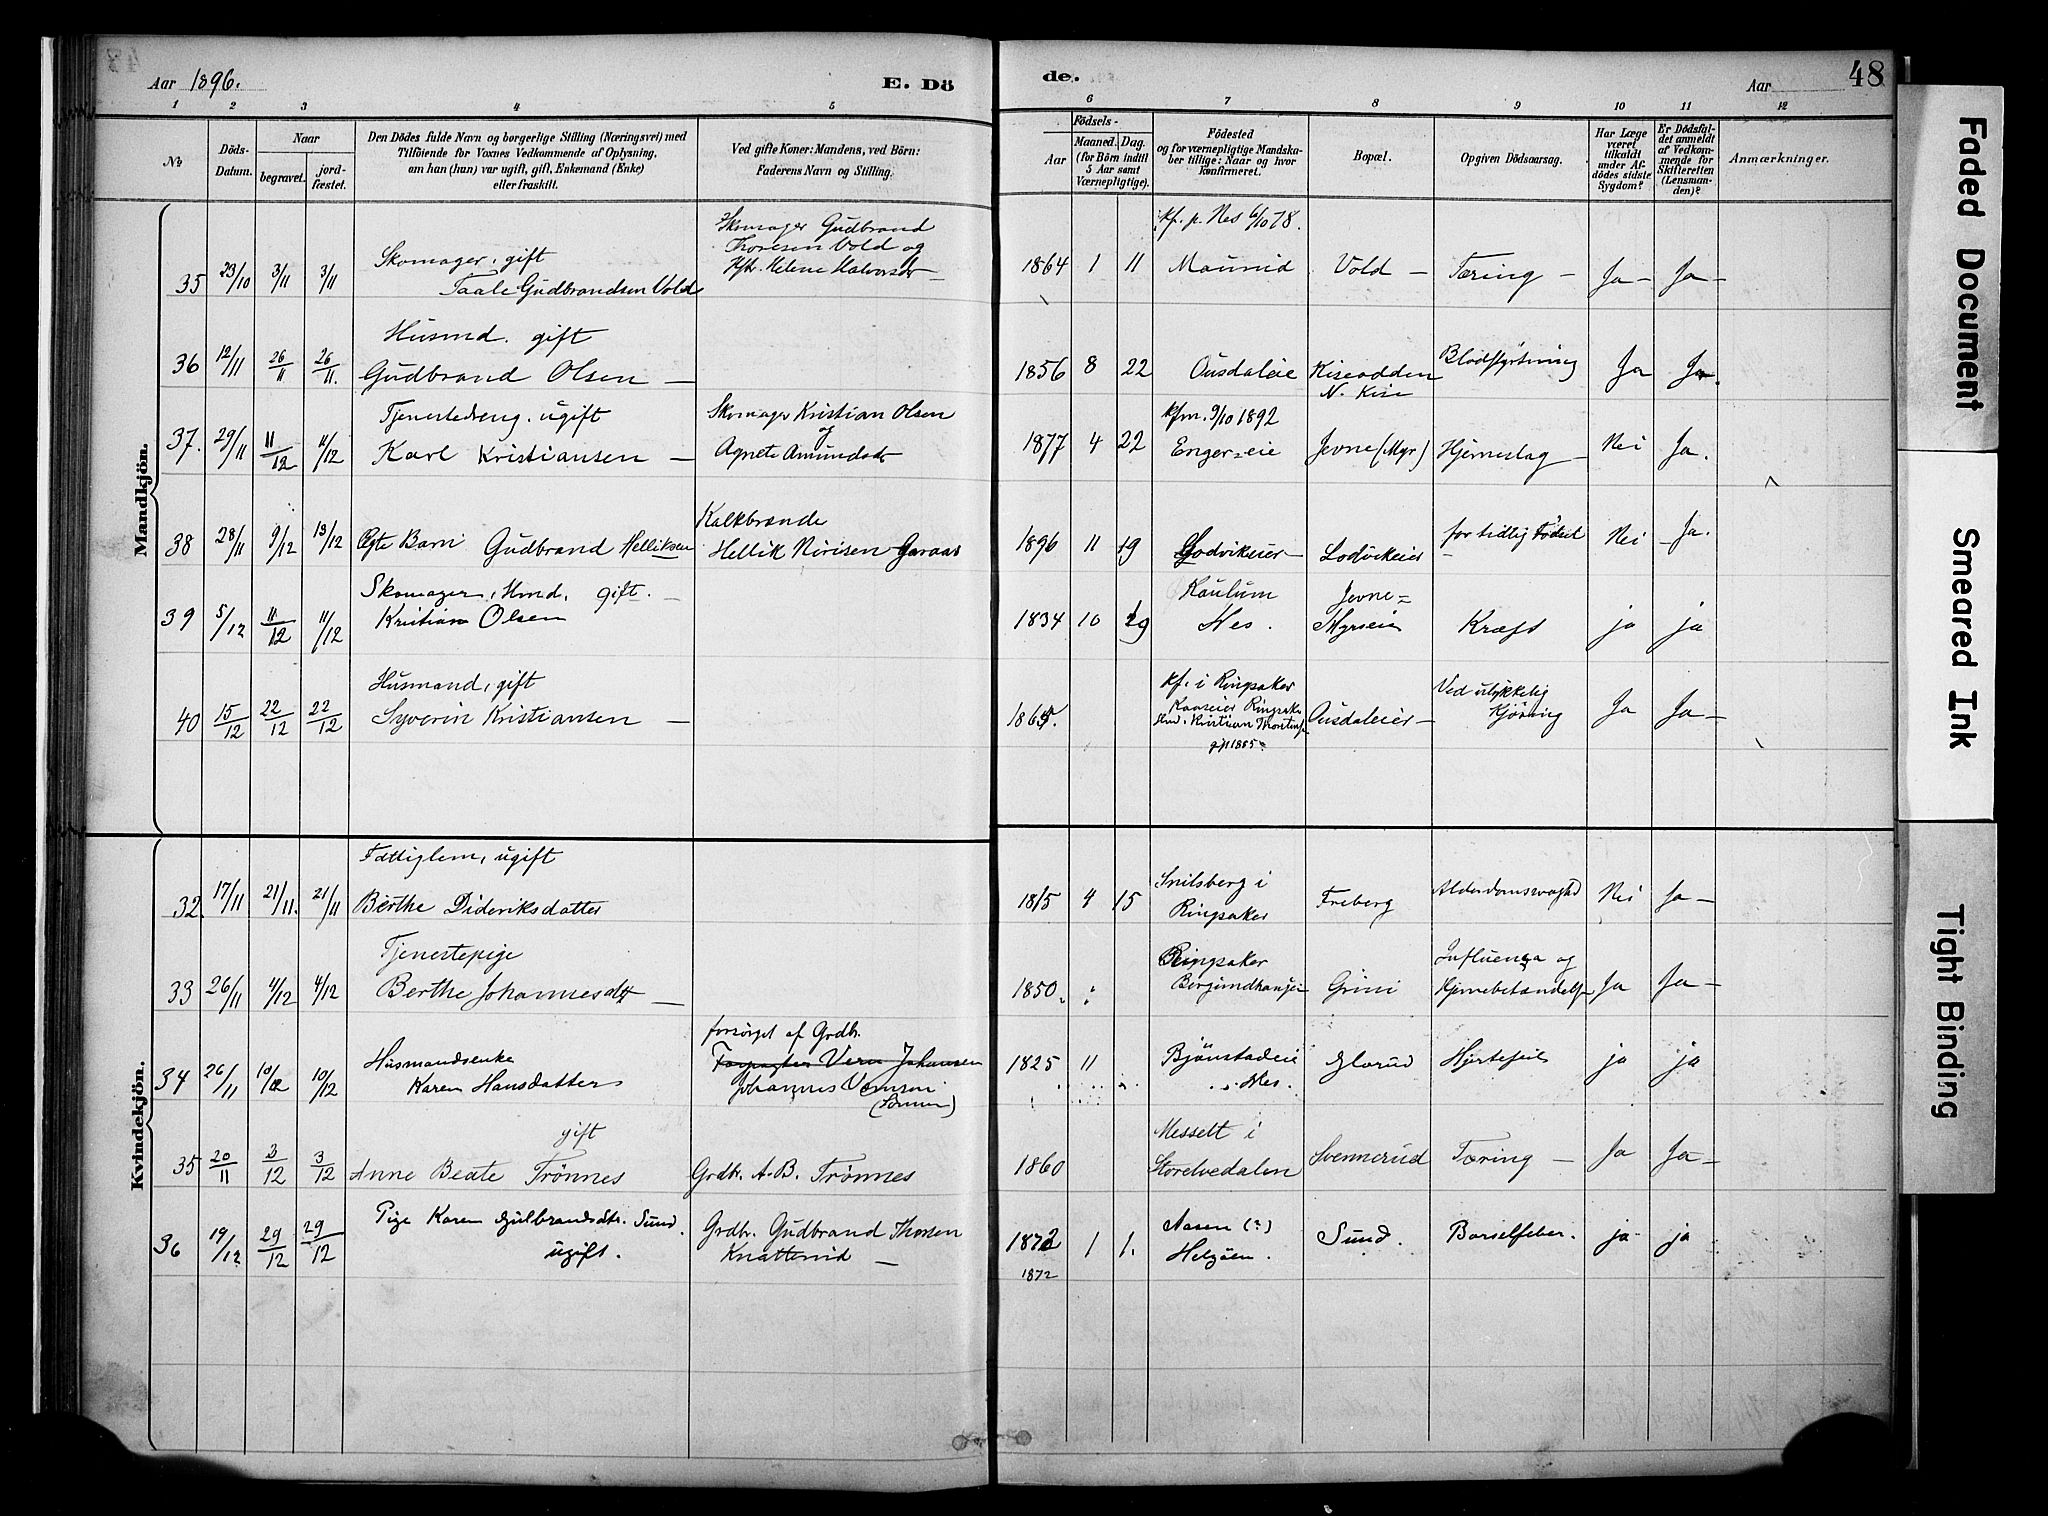 Aar 1896.
E. Dö
1 2 3 4 5
No
Döds-
Datum.
Naar
begravet.
jord-
fæstet.
Den Dödes fulde Navn og borgerlige Stilling (Næringsvei) med
Tilföiende for Voxnes Vedkommende af Oplysning,
om han (hun) var ugift, gift, Enkemand (Enke)
eller fraskilt.
Ved gifte Koner: Mandens, ved Börn:
Faderens Navn og Stilling.
Mandkjön.
35 23/10 3/11 3/11
Skomager, gift
Taale Gudbrandsen Vold
Skomager Gudbrand
Thoresen Vold og
Helene Halvorsdr
36 12/11 26/11 26/11.
Husmd. gift
Gudbrand Olsen —
37. 29/11 11/12 11/12
Tjenestedreng. ugift
Karl Kristiansen —
Skomager Kristian Olsen
og
Agnete Amundsdr
38 28/11 9/12 13/12
Ægte Barn Gudbrand Helliksen
Kalkbrænde
Hellik Nirisen Garaas
39 5/12 11/12 11/12
Skomager, Hmd, gift. —
Kristian Olsen
40 15/12 22/12 22/12
Husmand, gift
Syverin Kristiansen —
Kvindekjön.
32. 17/11 21/11. 21/11
Fattiglem, ugift
Berthe Dideriksdatter
33 26/11 4/12 4/12
Tjenestepige
Berthe Johannesdtr —
34 26/11 10/12 10/12
Husmandsenke
Karen Hansdatter
forsörget af Grdb.
Forpagter Vern Johansen
Johannes
(Sönnen)
35 20/11 3/12 3/12
gift
Anne Beate Trönnes
Grdbr. A. B. Trönnes
36 19/12 29/12 29/12
Pige Karen Gulbrandsdtr. Sund.
ugift.
Grdbr. Gudbrand Thorsen
Knatterud —
de.
Aar 48
6 7 8 9 10 11 12
Födsels-
Aar
Maaned. Dag.
(for Börn indtil
5 Aar samt
Værnepligtige).
Födested
og for værnepligtige Mandska-
ber tillige: Naar og hvor
konfirmeret.
Bopæl.
Opgiven Dödsaarsag.
Har Læge
været
tilkaldt
under Af-
dödes sidste
Sygdom?
Er Dödsfal-
det anmeldt
af Vedkom-
mende for
Skifteretten
(Lensman-
den)?
Anmærkninger.
kf. p. Nes 6/10 78.
1864 1 11 Maurud Vold — Tæring — Ja — Ja —
1856 8 22 Ousdaleie Kiseodden Blodstyrtning Ja Ja.
N. Kise
kfm. 9/10 1892
1877 4 22 Enger-eie Jevne (Myr) Hjerneslag — Nei Ja.
1896 11 19 Lodvikeier Lodvikeier for tidlig Födsel Nei — Ja.
Kaulum Jevne-
1834 10 29 Nes. Myreie Kræft ja ja
kf. i Ringsaker
Kaaseier Ringsaker
1865. Hmd. Kristian
gift 1885
Ousdaleier — Ved ulykkelig
Kjöring Ja Ja —
1815 4 15 Snilsberg i
Ringsaker Freberg Alderdomssvaghed Nei Ja —
1850. Ringsaker
Grini Influenza og
Hjernebetændelse Ja Ja —
1825 11 Bjönstadeie
Nes. Glorud Hjertefeil ja ja
1860 Messelt i
Storelvedalen Svennerud Tæring — Ja Ja —
1872 1 1. Aasen (?)
Helgöen. Sund. Barselfeber. ja ja
1872
Faded Document
Smeared Ink
Tight Binding